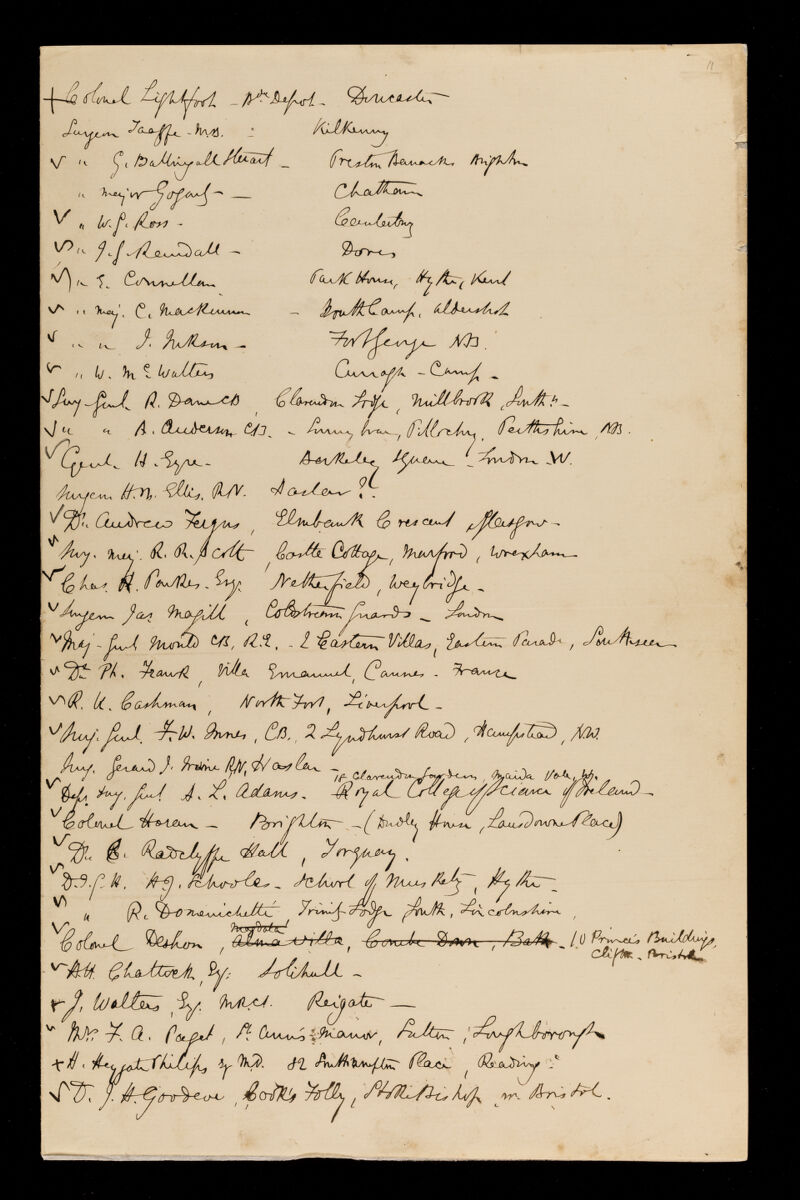 11
+ Colonel Lightfoot - Bde Depot - Doncaster
Surgeon Taaffe - M.B. : Kilkenny
✓ " G. Ballingall Stuart - Preston Barracks Brighton
" major Gogarty - Chatham
✓ " W. G. Ross - Canterbury
✓ " J. G. Rendall - Dover
✓ " E. Connellan Park House, Hythe, Kent
✓ " maj. C. Mackinnon - South Camp, Aldershot
✓ " " J. Inkson - Fort George NB.
✓ " W. Mc Watters Curragh - Camp -
✓ Surg-Genl. R. Dane CB, Clarendon Lodge, Millbrook, South.n -
✓ " " A. Anderson CB. - Sunny brae, Pitlochry, Perthshire, NB.
✓ Genl. H. Eyre - Berkeley Square - London - W.
Surgeon H. M. Ellis. R.N. Haslar ?.
✓ Dr. Andrew Fergus, Elmbank Crescent, Glasgow -
✓ Surg. maj. R. R. Scott, Castle Cottage, Marford, Wrexham
✓ Chas. H. Parkes - Esq. Netherfield, Weybridge -
✓ Surgeon Jas Magill, Coldstream Guards - London
✓ Maj - Genl Mould CB, R.E. - 2 Eastern Villas, Eastern Parade, Southsea
✓ Dr Ph. Frank, Villa Emanuel, Cannes - France
✓ R. U. Cashman, North Fort, Liverpool -
✓ Surg. Genl. F. W. Innes, CB. 2 Lyndhurst Road, Hampstead, NW.
Surg. Gerard J. Irvine RN, Haslar -
18 Clarendon Gardens, Maida Vale, W.
✓ Dep. Surg. Genl A. L. Adams. Royal College of Science of Ireland -
✓ Colonel Horan - Brighton - (Dudley House, Lansdowne Place)
✓ Dr C. Radclyffe Hall, Torquay.
✓ D.I.G.H. H. J. Schooles - School of Musketry, Hythe -
✓ " R. Domenichetti, Trinity Lodge Louth, Lincolnshire,
Magdala
✓ Colonel Deshon, Alma Villa, Combe Down, Bath - 10 Princes Buildings,
Clifton - Bristol
✓ A.H. Chattock, Esq: Solihull -
+ J. Walters, Esq. M.R.C.S. Reigate -
" Mrs. F. A. Paget, St Ann's Manor, Sutton, Loughborough
+ H. Heygate Philips Esq M.D. 82 Southampton Place, Reading
✓ D. J. H. Goodeve, Cook's Folly, Stoke Bishop, nr. Bristol.